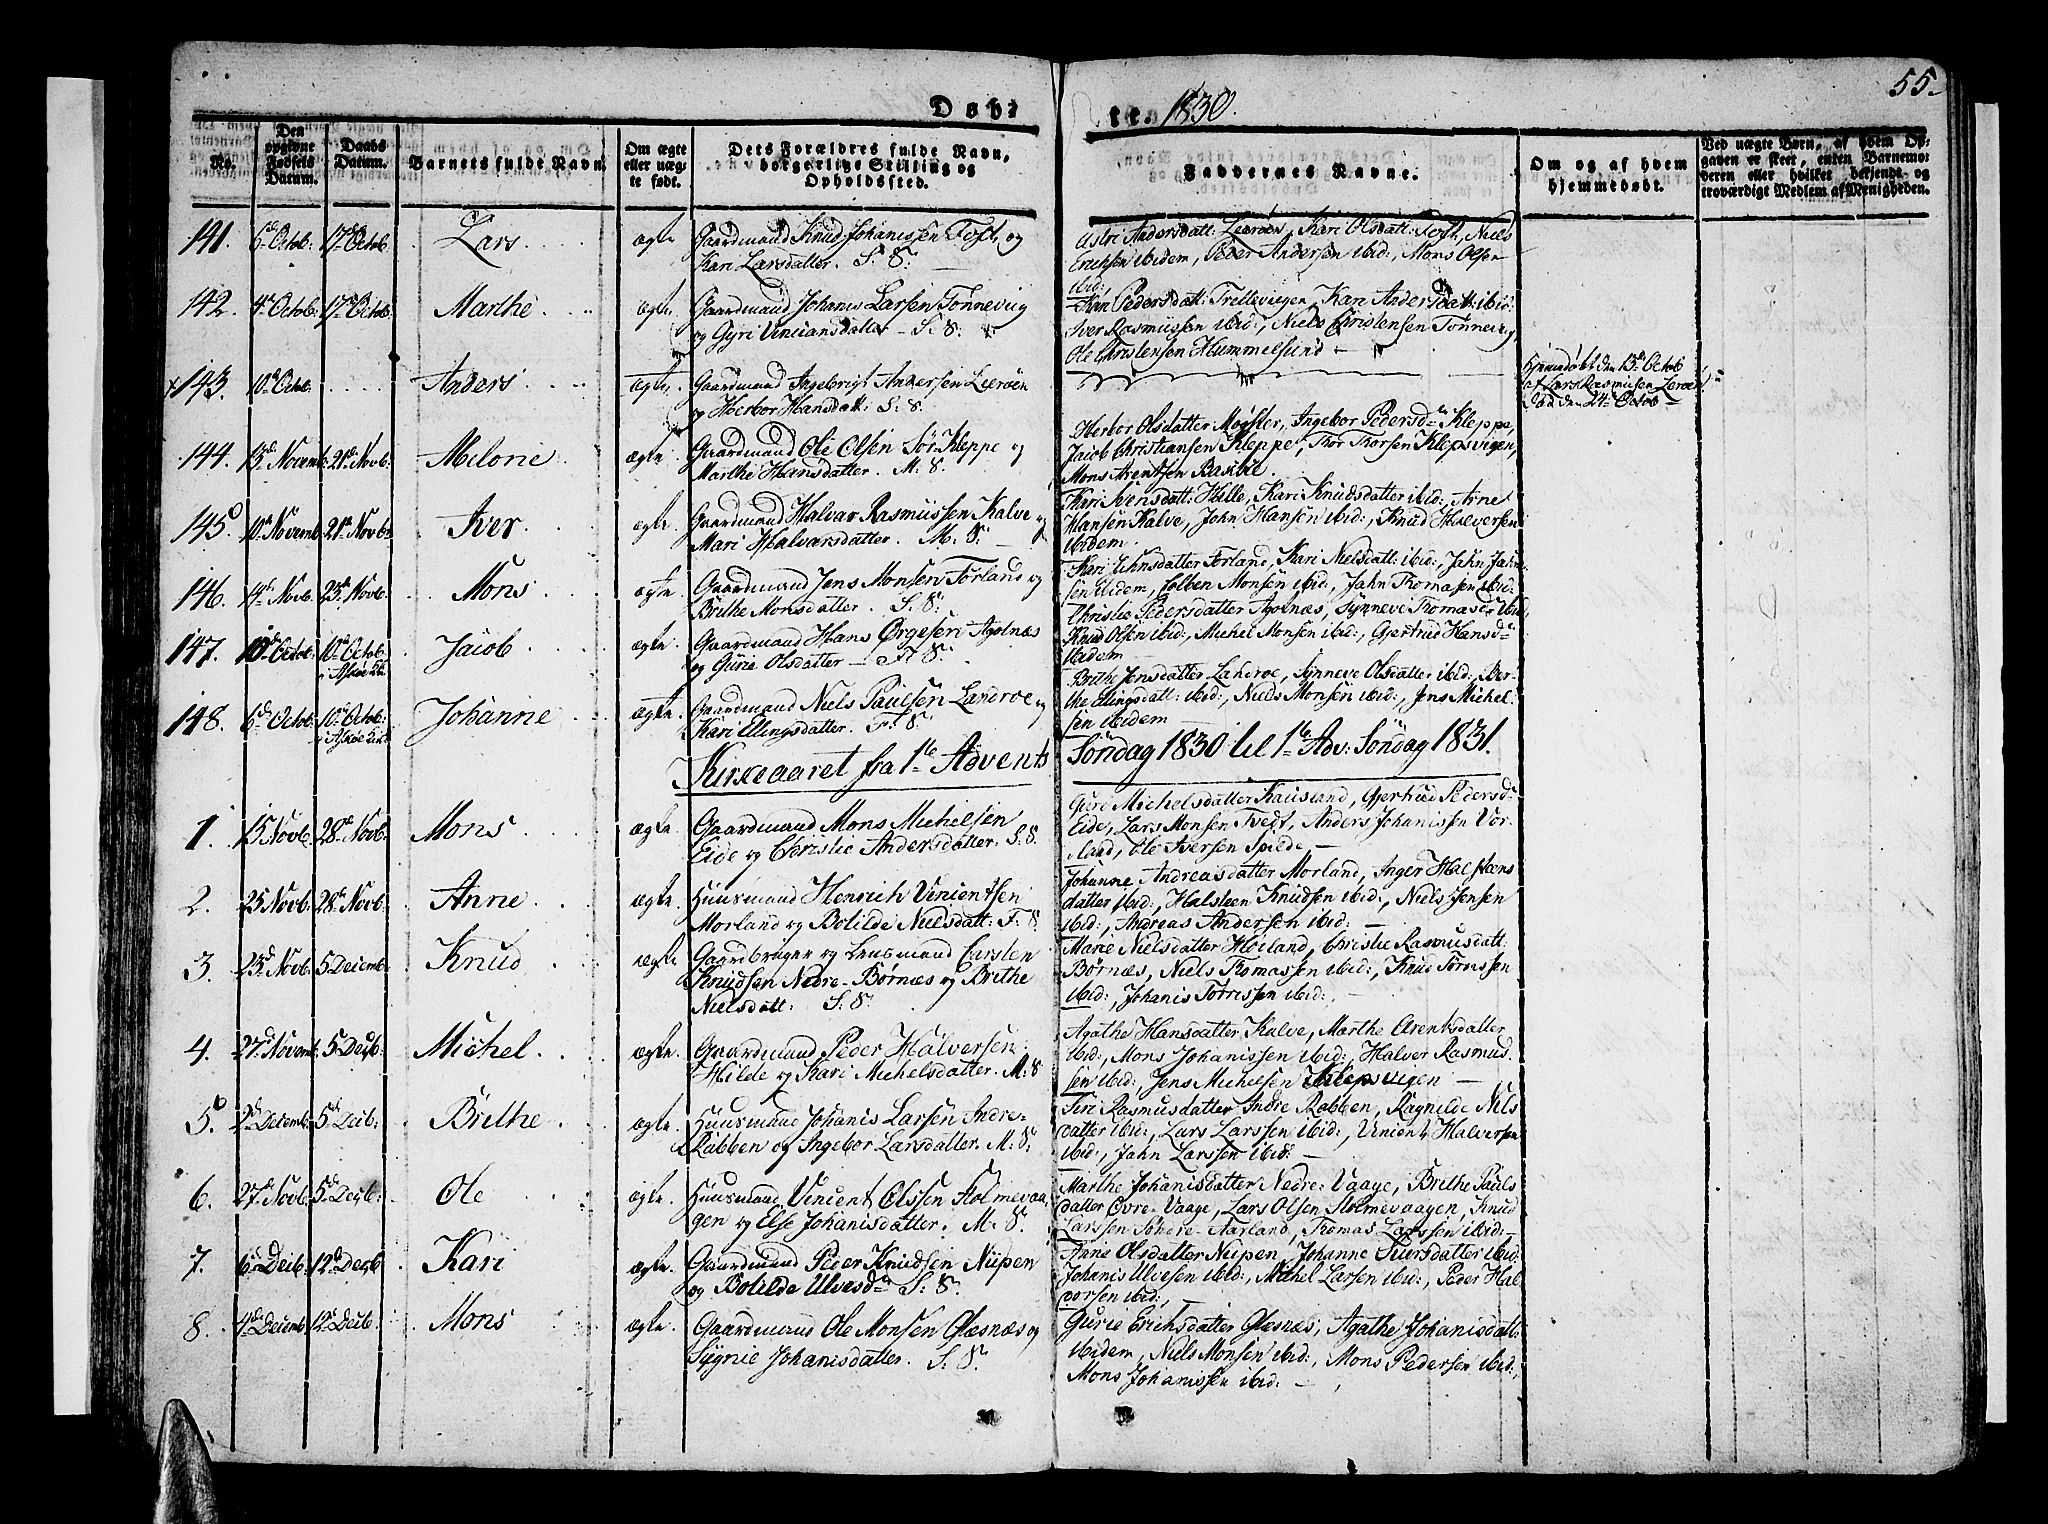 55.
Døbte. 1830.
No.
Den opgivne Fødsels Datum.
Daabs Datum.
Barnets fulde Navn.
Om ægte eller uægte født.
Dets Forældres fulde Navn, borgerlige Stilling og Opholdssted.
Faddernes Navne.
Om og af hvem hjemmedøbt.
Ved uægte Børn, af hvem Opgaven er skeet, enten Barnemoderen eller hvilket bekjendt og troværdigt Medlem af Menigheden.
141. 6 Octob: 17 Octob. Lars. ægte
Gaardmand Knud Johannissen Toft, og
Kari Larsdatter. S: S:
Astri Andersdatt: Leeröen, Kari Olsdatt: Toft, Niels
Erichsen ibidem, Peder Andersen ibid:, Mons Olsen
ibid:,
142. 4 Octob. 17 Octob: Marthe ægte,
Gaardmand Johanis Larsen Tönnevig
og Gyri Vinciansdatter. S: S:
Kari Pedersdatt: Trettevigen, Kari Andersdatt: ibid:
Iver Rasmussen ibid:, Niels Christensen Tönnevig,
Ole Christensen Hummelsund
143. 10 Octb. Anders ægte,
Gaardmand Ingebrigt Andersen Leeröen
og Herbor Hansdatt: S: S.
Hjemmdöbt den 13 Octob
af Lars Rasmussen Leröen,
död den 24 Octob
144. 13 Novemb: 21 Novb. Milorie ægte
Gaardmand Ole Olsen Sör-Kleppe og
Marthe Hansdatter. M: S.
Herbor Olsdatter Møgster, Ingebor Pedersd Kleppe,
Jacob Christiansen Kleppe, Thor Thorsen Klepsvigen,
Mons Arentsen Bakböl.
145. 10 Novemb 21 Novb: Iver ægte.
Gaardmand Halvar Rasmussen Kalve og
Mari Halvarsdatter. M: S:
Kari Svensdatt: Hille, Kari Knudsdatter ibid:, Arne
Hansen Kalve, John Hansen ibid:, Knud Halversen
ibidem.
146. 14 Novb. 25 Novb. Mons ægte
Gaardmand Jens Monsen Forland og
Brithe Monsdatter. S: S:
Kari Johnsdatter Forland, Kari Nielsdatt: ibid:, Jahn Jahn
sen ibidem, Monsen ibid:, Jahn Thomasen ibid:
147. 10 Octob: 10 Octob i Askøe Kirke Jacob ægte.
Gaardmand Hans Ørgesen Agotnæs
og Gurie Olsdatter F: S:
Christie Pedersdatter Agotnæs, Synneve Thomasd: ibid:
Knud Olsen ibid:, Michel Monsen ibid:, Gjertrud Hansd
ibidem
148. 6 Octob: 10 Octob: i Askøe Kirke Johanne ægte
Gaardmand Niels Paulsen Landroe og
Kari Ellingsdatter. F: S:
Brithe Jensdatter Landroe, Synneve Olsdatter ibid:, Ber
the Ellingsdatt: ibid:, Niels Monsen ibid:, Jens Michel
sen ibidem
Kirkeaaret fra 1te Advents Söndag 1830 til 1te Adv: Söndag 1831.
1. 15 Novb. 28 Novb. Mons ægte.
Gaardmand Mons Michelsen
Eide og Christie Andersdatter. S: S.
Guri Michelsdatter Kausland, Gjertrud Pedersd
Eide, Lars Monsen Tvedt, Anders Johanissen Vor
land, Ole Iversen Spilde,
2. 25 Novb. 28 Novb. Anne ægte.
Huusmand Henrich Vincentsen
Morland og Botilde Nielsdatt: F: S
Johanne Andreasdatter Morland, Inger Halsteens
datter ibid:, Halsteen Knudsen ibid:, Niels Jensen
ibid:, Andreas Andersen ibid:
3. 23 Novb. 5 Decemb. Knud ægte
Gaardbruger og Lensmand Carsten
Knudsen Nedre-Børnæs og Brithe
Nielsdatt: S: S.
Marie Nielsdatter Höiland, Christie Rasmusdatt:
Børnæs, Niels Thomassen ibid:, Knud Torrissen
ibid:, Johanis Torrissen ibid:,
4. 27 Novemb. 5 Decb: Michel. ægte.
Gaardmand Peder Halversen
Hilde og Kari Michelsdatter. M: S
Agathe Hansdatter Kalve, Marthe Arentsdatter
ibid:, Mons Johanissen ibid:, Halver Rasmus
sen ibid:, Jens Michelsen Klepsvigen
5. 2 Decemb. 5 Decb: Brithe ægte.
Huusmand Johanis Larsen Indre
Rabben og Ingebor Larsdatter. M: S.
Siri Rasmusdatter Indre Rabben, Ragnilde Niels
datter ibid:, Lars Larssen ibid:, Vincent Halversen
ibid:, Jahn Larssen ibid:
6. 27 Novb. 5 Decb: Ole ægte.
Huusmand Vincent Olssen Holmevaa
gen og Else Johanisdatter. M: S.
Marthe Johanisdatter Nedre-Vaage, Brithe Pauls
datter Övre-Vaage, Lars Olsen Holmevaagen, Knud
Larssen Söndre-Aarland, Thomas Larssen ibid:
7. 6 Decb: 12 Decb. Kari ægte.
Gaardmand Peder Knudsen Nipen
og Botilde Ulvesd. S: S.
Anne Olsdatter Nipen, Johanne Siursdatter ibid:
Johanis Ulvesen ibid:, Michel Larsen ibid:, Peder Hal
vorsen ibid:,
8. 4 Decemb. 12 Decb. Mons ægte.
Gaardmand Ole Monsen Glæsnæs og
Sygnie Johanisdatter. S: S.
Gurie Erichsdatter Glæsnæs, Agathe Johanisdatt:
ibidem, Niels Monsen ibid:, Mons Pedersen ibid:,
Mons Johanissen ibid: